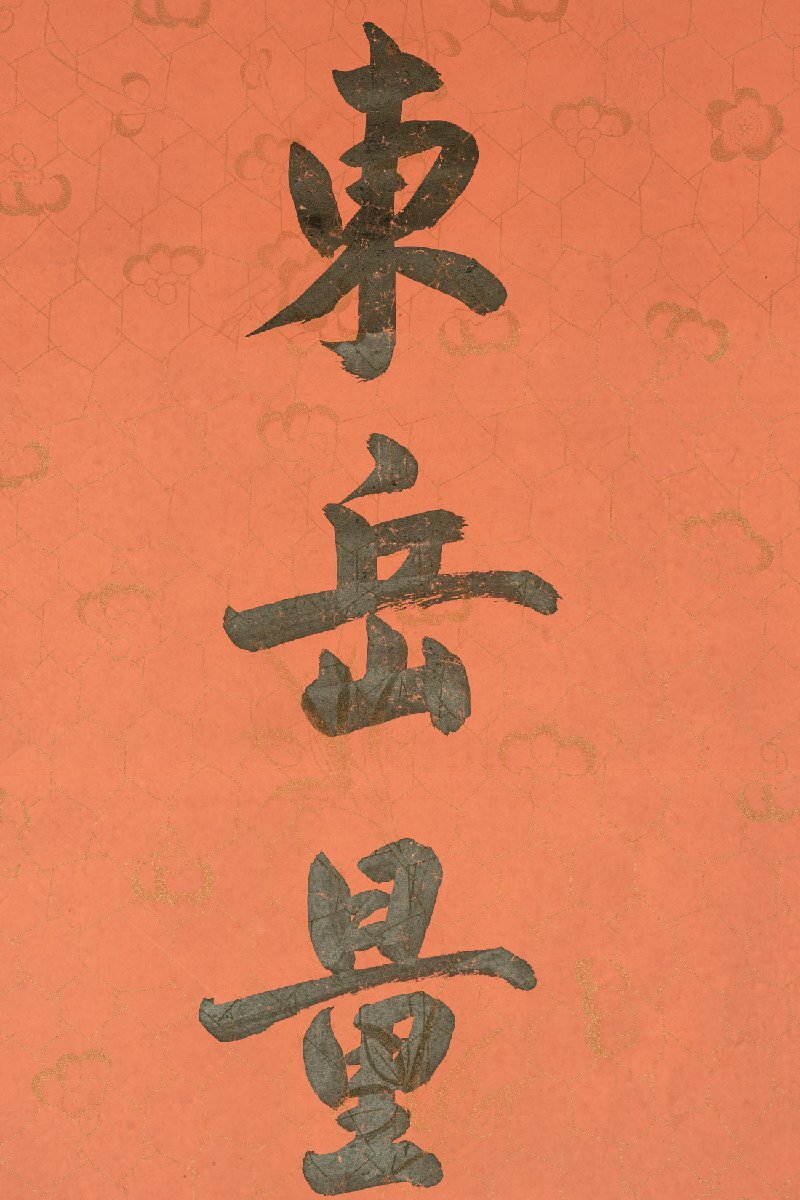 東岳量